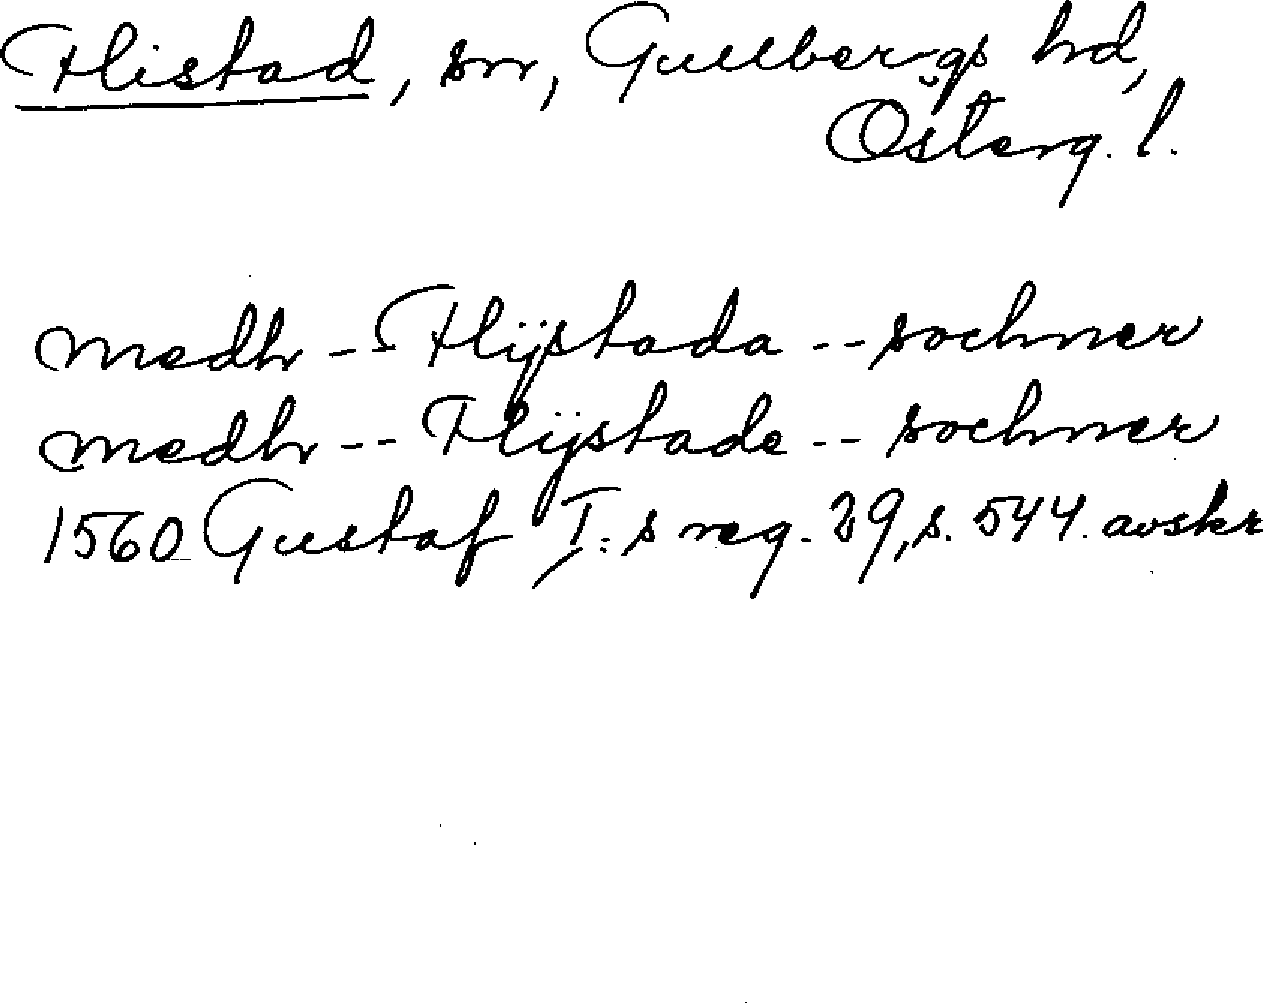 Flistad, sn, Gullbergs hd,
Österg. l.
medh -- Flijstada -- sochner
medh -- Flijstade -- sochner
1560 Gustaf I:s reg. 29, s. 544. avskr